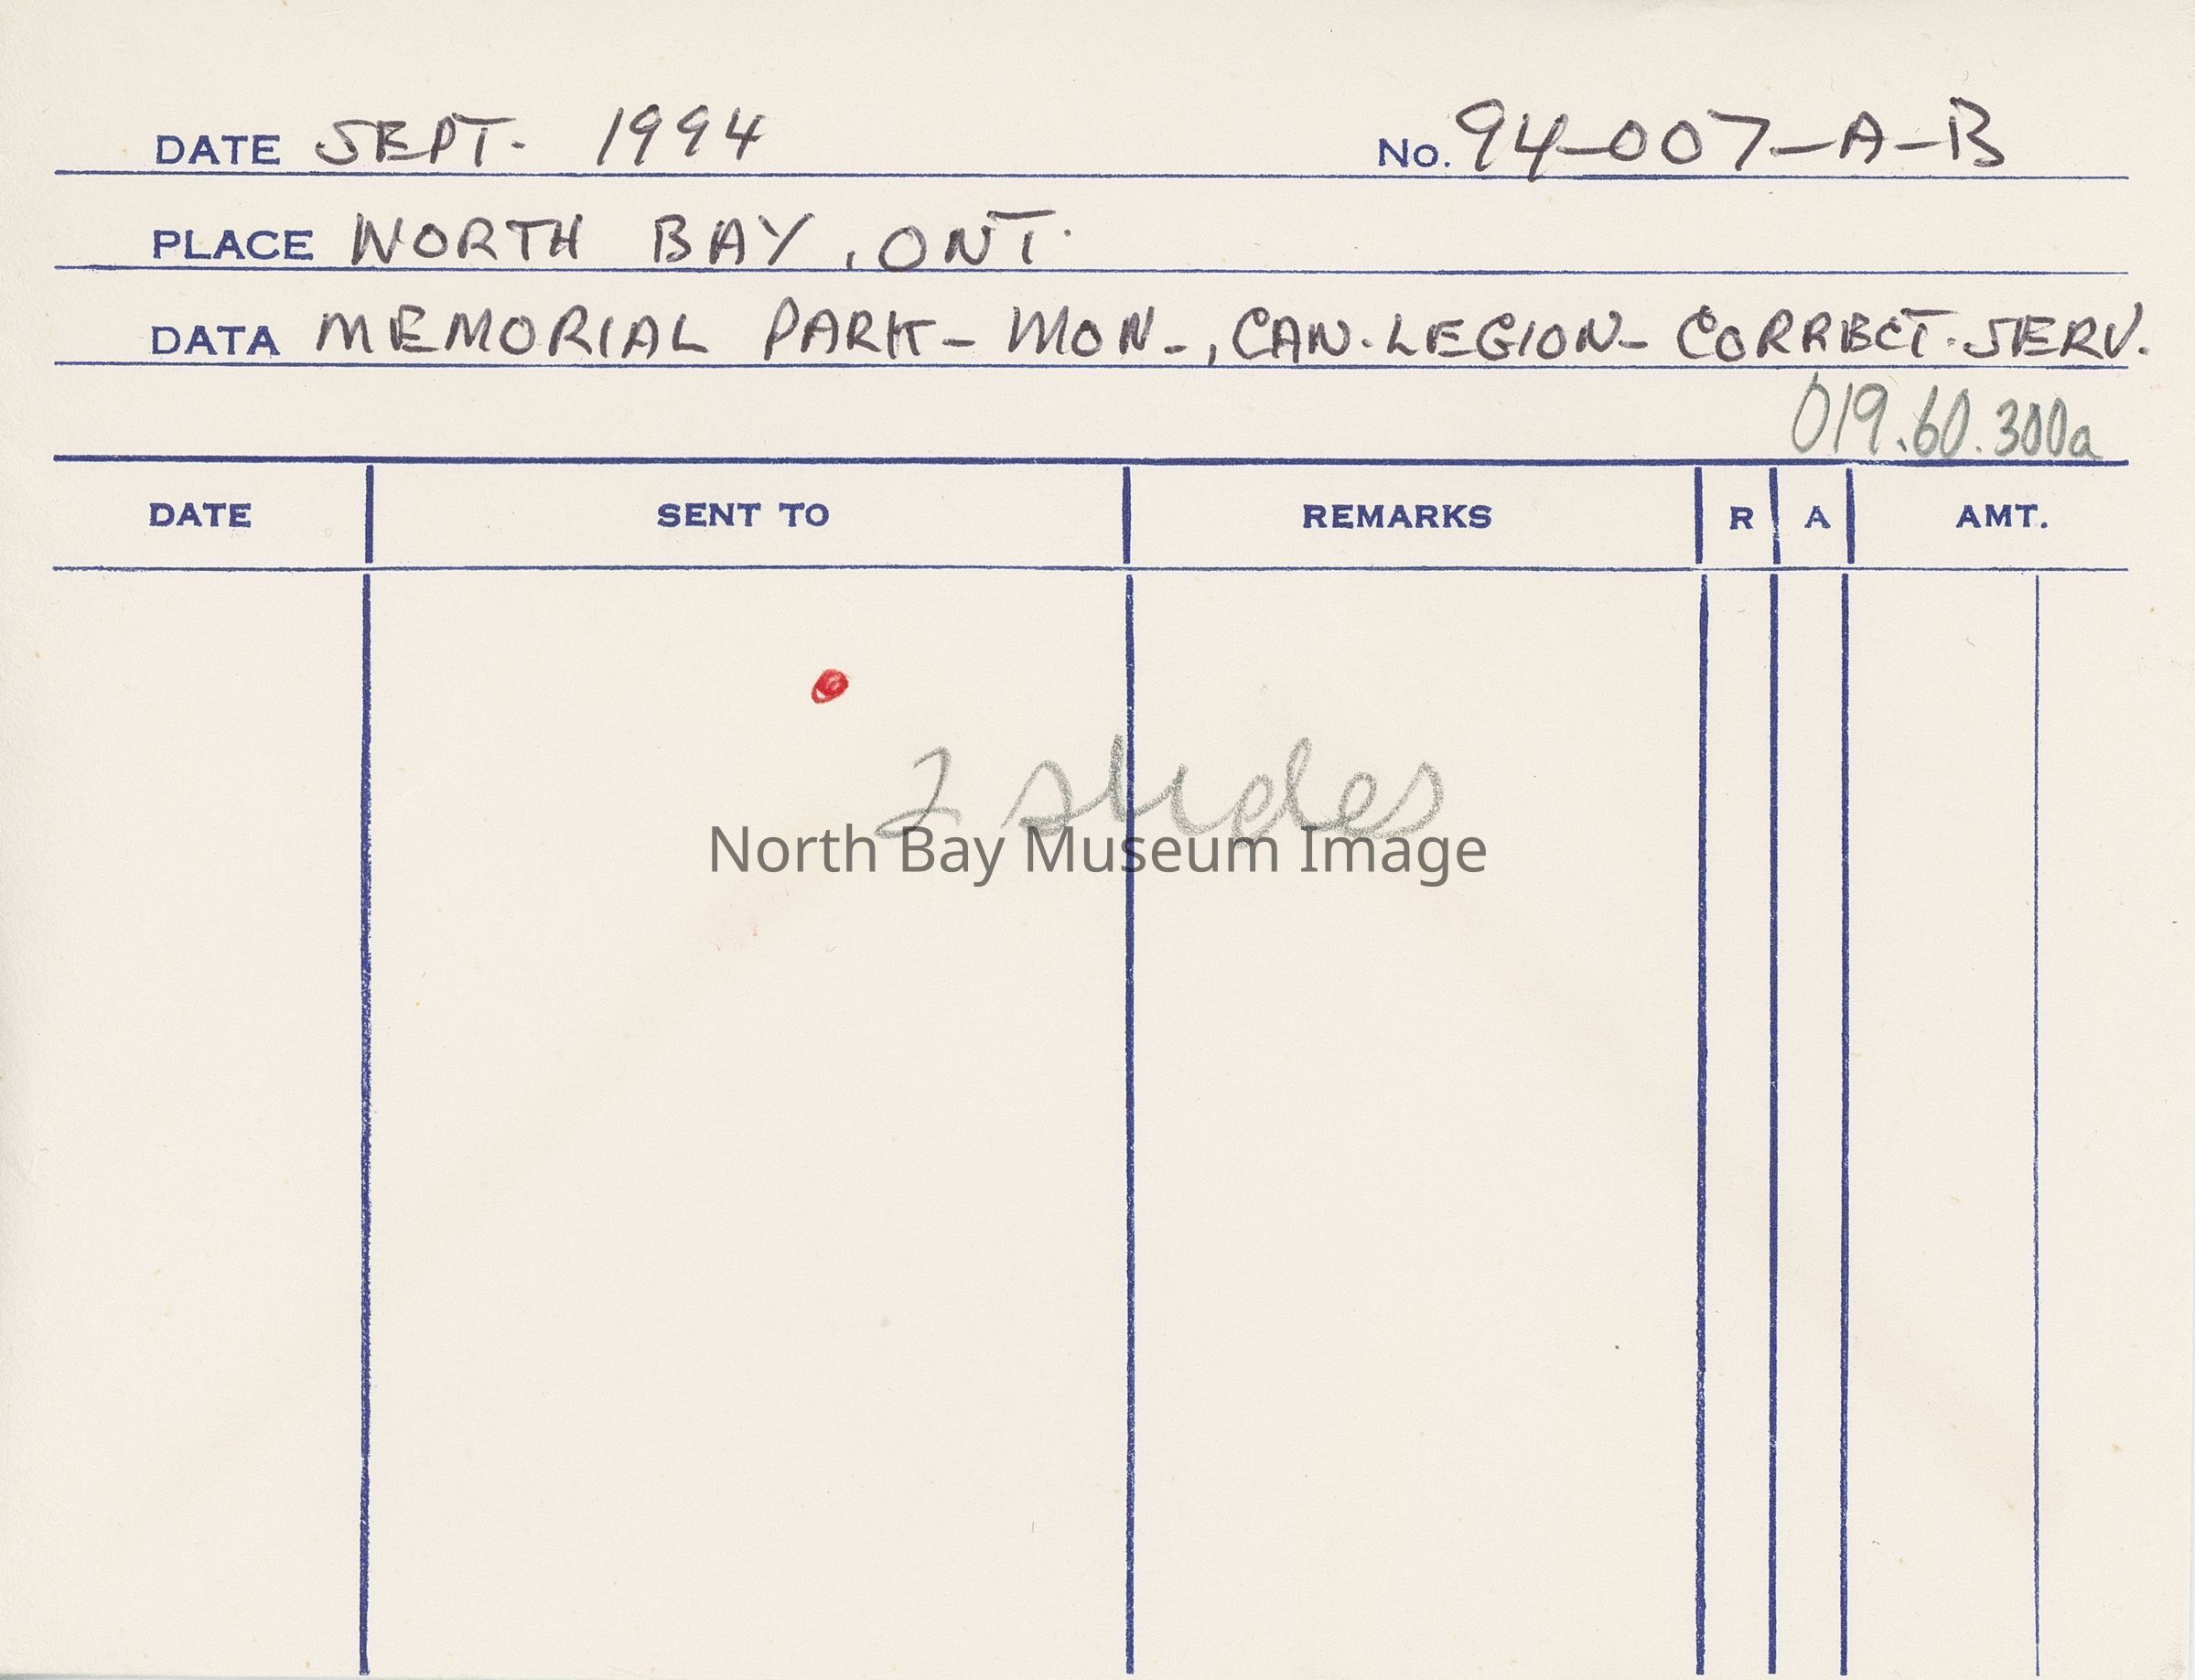 DATE SEPT. 1994 No. 94-007-A-B
PLACE NORTH BAY, ONT.
DATA MEMORIAL PARK- MON-, CAN. LEGION- CORRECT. SERV.
019.60.300a
DATE SENT TO REMARKS R A AMT.
2 slides
North Bay Museum Image